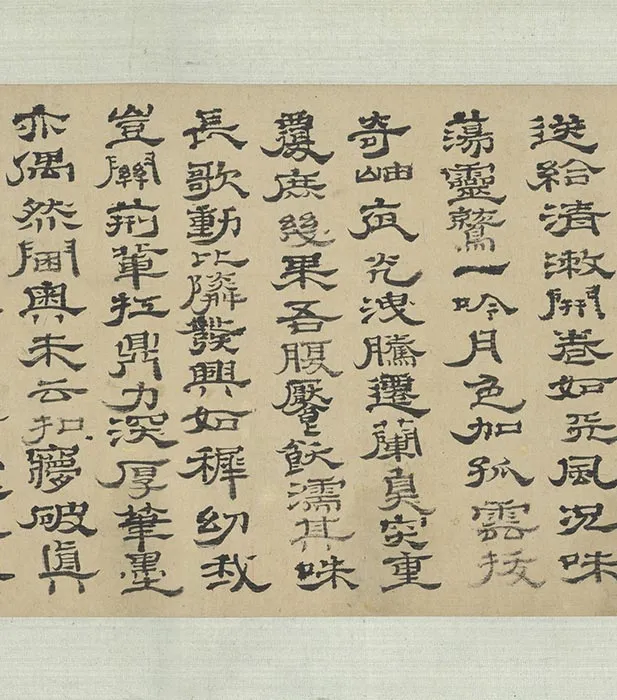 送給清漱開卷如風況味
蕩靈鷲一吟月色加孤雲拔
奇岫夜光洩騰遷蘭臭突重
覆庶幾果吾腹饜飫濡其味
長歌動比隣發興如穉幼哉
豈關荊輩扛鼎力深厚筆墨
亦偶然閫奧未云扣夢破真